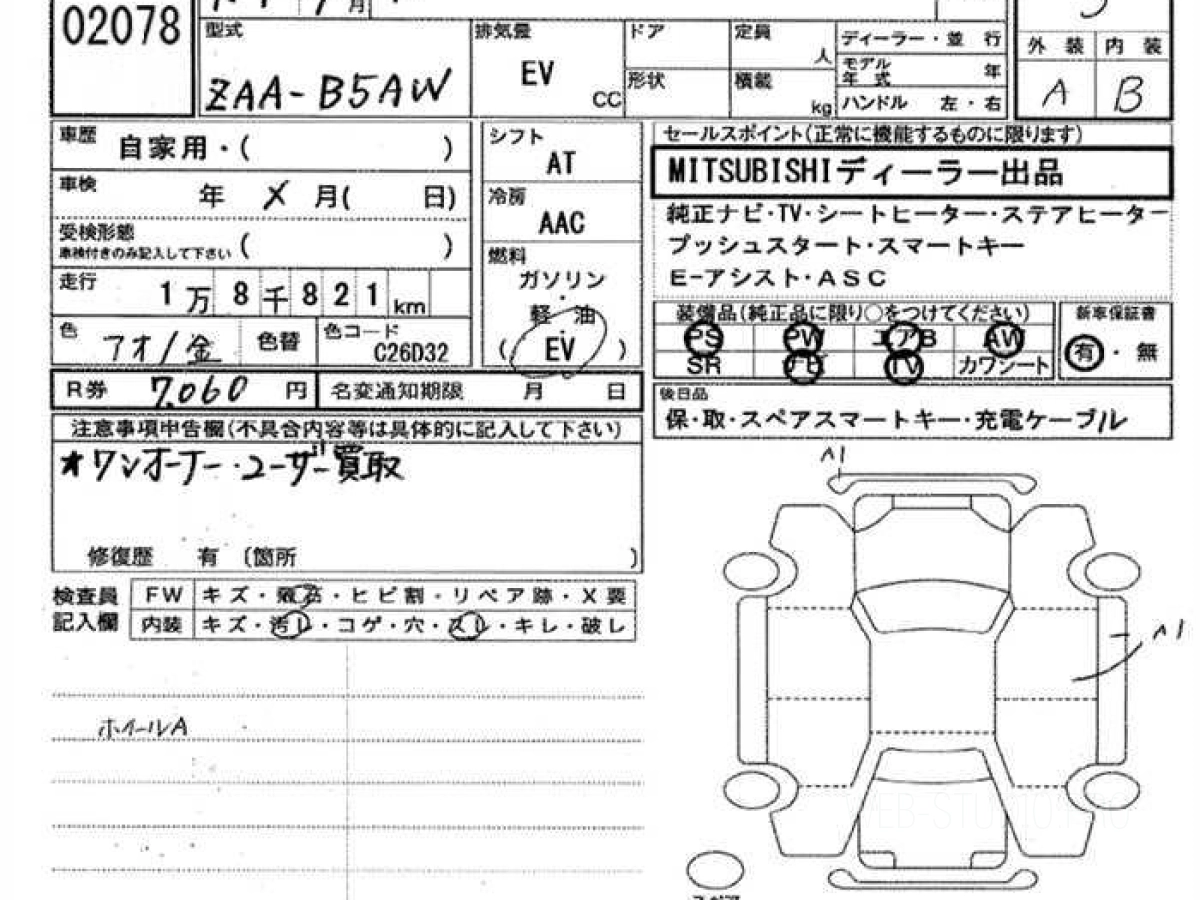 02078
月
型式
ZAA-B5AW
排気量
EV
CC
ドア
形状
定員
人
積載
kg
ディーラー・並 行
モデル
年 式 年
ハンドル 左・右
外 装 内 装
A B
車歴 自家用・( )
車検 年 X 月( 日)
受検形態
車検付きのみ記入して下さい ( )
走行 1万8千821km
色 アオ/金 色替 色コード C26D32
シフト
AT
冷房
AAC
燃料
ガソリン
・
軽 油
・
( EV )
セールスポイント(正常に機能するものに限ります)
MITSUBISHIディーラー出品
純正ナビ・TV・シートヒーター・ステアヒーター
プッシュスタート・スマートキー
E-アシスト・ASC
装備品(純正品に限り○をつけてください)
PS PW エアB AW
SR ナビ TV カワシート
新車保証書
有・無
R券 7,060 円 名変通知期限 月 日
後日品
保・取・スペアスマートキー・充電ケーブル
注意事項申告欄(不具合内容等は具体的に記入して下さい)
★ワンオーナー・ユーザー買取
修復歴 有 (箇所 )
検査員
記入欄
FW キズ・飛石・ヒビ割・リペア跡・X要
内装 キズ・汚レ・コゲ・穴・スレ・キレ・破し
ホイールA
A1
A1